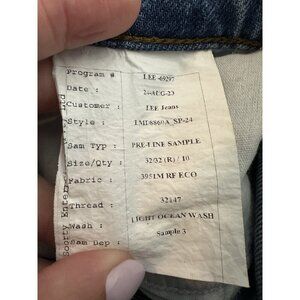 Program # LEE-69297
Date : 24-AUG-23
Customer : LEE Jeans
Style : LMD8860A_SP-24
Sam Typ : PRE-LINE SAMPLE
Size/Qty : 32/32 (R) / 10
Fabric : 3951M RF ECO
Thread : 32147
Wash : LIGHT OCEAN WASH
Sam Dep : Sample 3
Soorty Enter